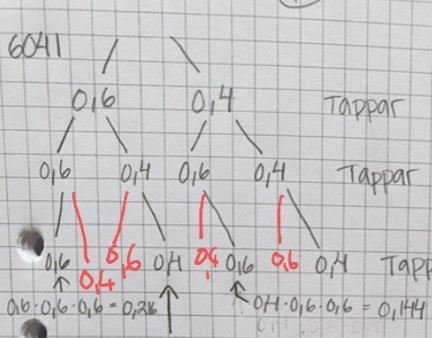 6041
0,6 0,4 Tappar
0,6 0,4 0,6 0,4 Tappar
0,6 0,4 0,6 0,4 0,4 0,6 0,6 0,4 Tapp
0,6·0,6·0,6 = 0,216 0,4·0,6·0,6 = 0,144